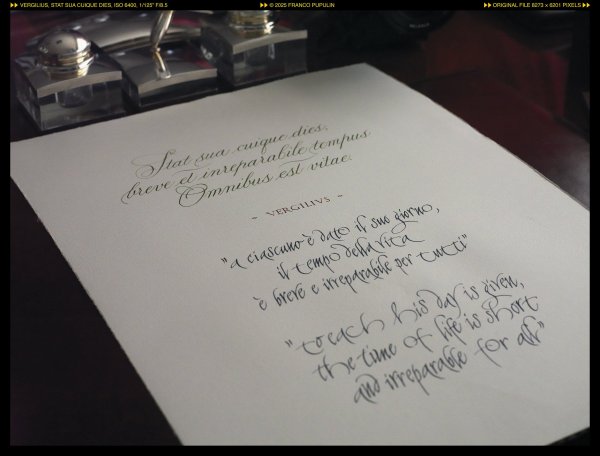 VERGILIUS, STAT SUA CUIQUE DIES, ISO 6400, 1/125" F/8.5
© 2025 FRANCO PUPULIN
ORIGINAL FILE 8273 x 6201 PIXELS
Stat sua cuique dies,
breve et inreparabile tempus
Omnibus est vitae.
- VERGILIUS -
"a ciascuno è dato il suo giorno,
il tempo della vita
è breve e irreparabile per tutti"
"to each his day is given,
the time of life is short
and irreparable for all"